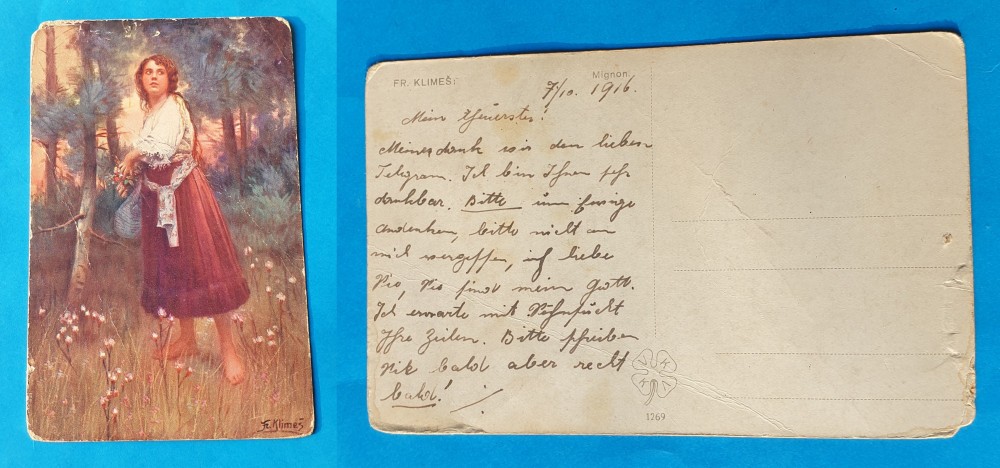 Fr. Klimeš
FR. KLIMEŠ:
Mignon.
7/10. 1916.
Mein theuerster!
dank wir den lieben
Telegram. Ich bin Ihnen sehr
dankbar. Bitte um Ewige
andenken, bitte nicht an
mich vergessen, ich liebe
Sie, Sie sind mein Gott.
Ich erwarte mit Sehnsucht
Ihre Zeilen. Bitte schreiben
bald aber recht
bald!
VKKV
1269